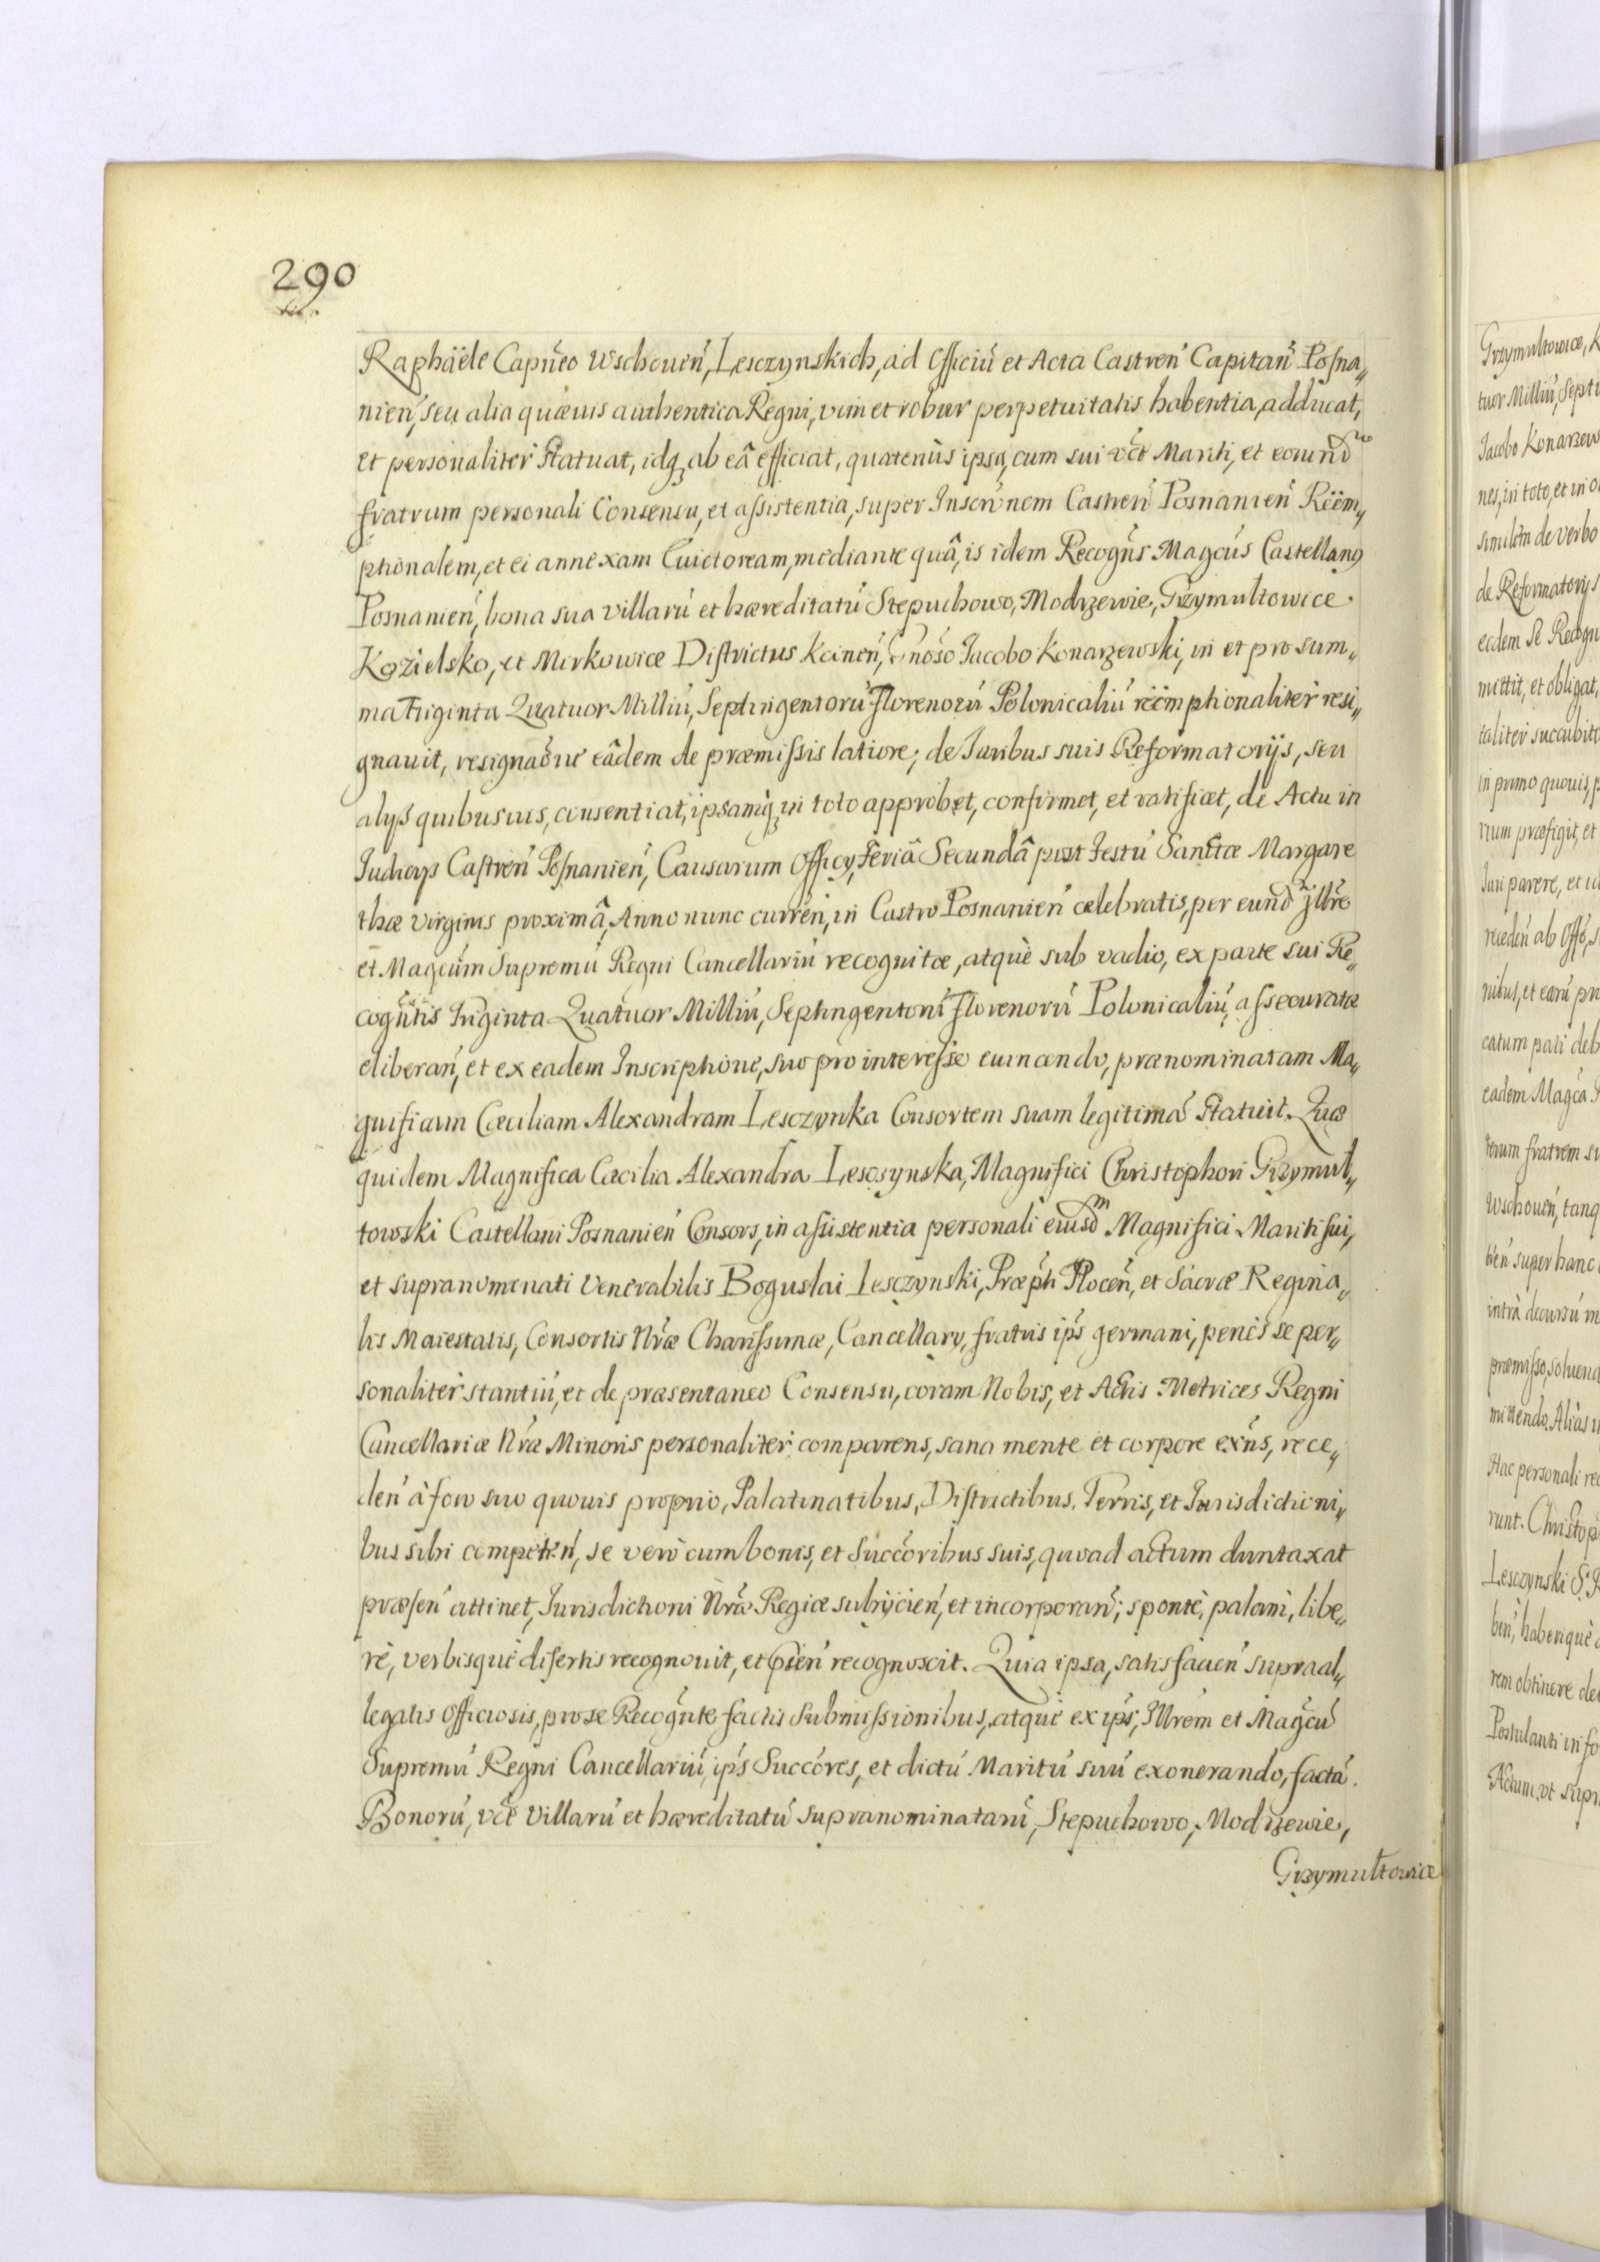 290
Raphäele Capñeo Wschouen̄, Lesczynskich, ad Officiū et Acta Castren̄ Capitan̄ Posna„
nien̄, seu alia quæuis authentica Regni, vim et robur perpetuitatis habentia, adducat,
et personaliter Statuat, idq̨ ab eâ efficiat, quatenùs ipsa, cum sui vt̄ Mariti, et eorund̄
fratrum personali Consensu, et assistentia, super Inscrip̄nem Castren̄ Posnanien̄ Reëm„
ptionalem, et ei annexam Euictoream, mediante quâ, is idem Recogn̄s Magcūs Castellanꝯ
Posnanien̄, bona sua villarū et hæreditatū Stepuchowo, Modrzewie, Grzymultowice
Kozielsko, et Mirkowice Districtus Kcinen̄, G̃noso Jacobo Konarzewski, in et pro sum„
ma Triginta Quatuor Milliū, Septingentorū Florenorū Polonicaliū reëmptionaliter resi„
gnauit, resignaōue eâdem de præmissis latiore; de Juribus suis Reformatorijs, seu
alijs quibusuis, consentiat, ipsamq̨ in toto approbet, confirmet, et ratificet, de Actu in
Judicijs Castren̄ Posnanien̄, Causarum Officij, Feriâ Secundâ post Festū Sanctæ Margare
thæ Virginis proximâ, Anno nunc curren̄, in Castro Posnanien̄ celebratis, per eund̄ Jllr̄e
et Magcūm Supremū Regni Cancellariū recognitæ, atquè sub vadio, ex parte sui Re„
cogn̄tis Triginta Quatuor Milliū, Septingentorū Florenorū Polonicaliū, assecuratæ
eliberan̄, et ex eadem Inscriptione, suo pro interesse euincendo, prænominatam Ma„
gnificam Cæciliam Alexandram Lesczynka Consortem suam legitimā Statuit. Quæ
quidem Magnifica Cæcilia Alexandra Lescsynska, Magnifici Christophori Grzymul„
towski Castellani Posnanien̄ Consors, in assistentia personali eiusdm̄ Magnifici Mariti sui,
et supranominati Venerabilis Boguslai Lesczynski, Præpt̄i Plocen̄, et Sacræ Regina„
lis Maiestatis, Consortis Nr̄æ Charissimæ, Cancellarij, fratris ip̄s germani, penes se per„
sonaliter stantiū, et de præsentaneo Consensu, coram Nobis, et Actis Metrices Regni
Cancellariæ Nr̄æ Minoris personaliter comparens, sana mente et corpore exn̄s, rece„
den̄ à foro suo quouis proprio, Palatinatibus, Districtibus, Terris, et Jurisdictioni„
bus sibi competen̄, se verò cum bonis, et Succōribus suis, quoad actum duntaxat
præsen̄ attinet, Jurisdictioni Nr̄æ Regiæ subijcien̄, et incorporan̄; sponte, palam, libe„
rè, verbisquè disertis recognouit, et p̄sen̄ recognoscit. Quia ipsa, satisfacien̄ supraal„
legatis Officiosis, pro se Recogn̄te factis Submissionibus, atquè ex ip̄s, Jllrem et Magcū
Supremū Regni Cancellariū, ip̄s Succōres, et dictū Maritū suū exonerando, factā
Bonorū, vt̄ Villarū et hæreditatū supranominatarū, Stepuchowo, Modrzewie,
Grzymultowice